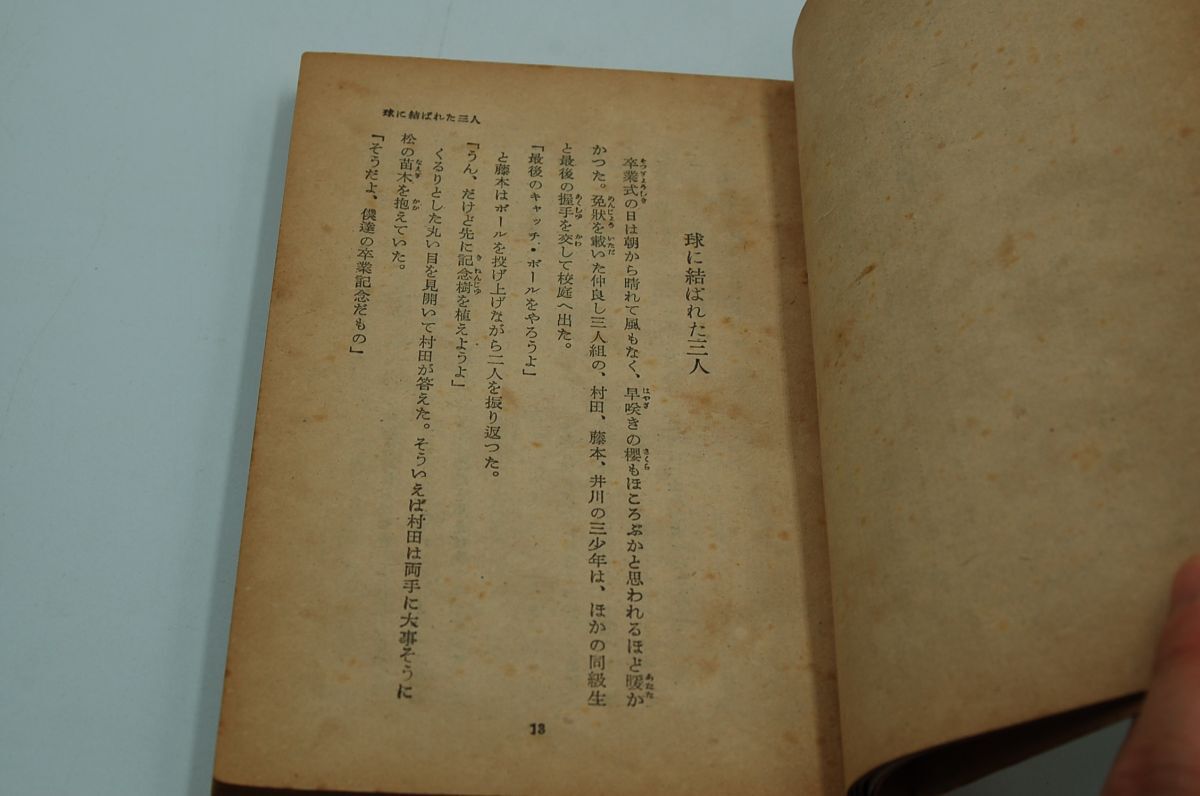 球に結ばれた三人
球に結ばれた三人
卒業式の日は朝から晴れて風もなく、早咲きの櫻もほころぶかと思われるほど暖か
かつた。免狀を載いた仲良し三人組の、村田、藤本、井川の三少年は、ほかの同級生
と最後の握手を交して校庭へ出た。
「最後のキャッチ・ボールをやろうよ」
と藤本はボールを投げ上げながら二人を振り返つた。
「うん、だけど先に記念樹を植えようよ」
くるりとした丸い目を見開いて村田が答えた。そういえば村田は両手に大事そうに
松の苗木を抱えていた。
「そうだよ、僕達の卒業記念だもの」
13